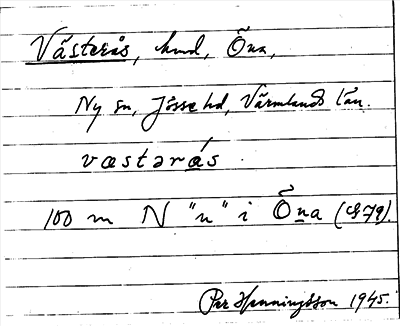 Västerås, hmd, Õna,
Ny sn, Jösse hd, Värmlands län.
vastərás.
100 m N "n" i Õna (G79).
Per Henningsson 1945.